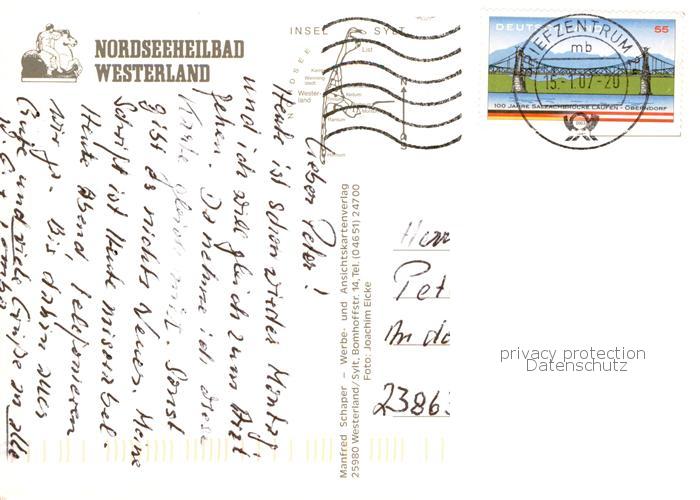 NORDSEEHEILBAD
WESTERLAND
INSEL SYLT
NORDSEE
List
Wester-
land
Keitum
Hörnum
N
S
DEUTSCHLAND 55
100 JAHRE SALZACHBRÜCKE LAUFEN - OBERNDORF
BRIEFZENTRUM
mb
15.-1.07-20
Lieber Peter!
Heute ist schon wieder Montag
und ich will gleich zum Arzt
gehen. Da nehme ich diese
Karte gleich mit. Sonst
gibt es nichts Neues. Meine
Schrift ist heute miserabel.
Heute Abend telefonieren
wir ja. Bis dahin
Grüße und viele Grüße an alle
Manfred Schaper – Werbe- und Ansichtskartenverlag
25980 Westerland/Sylt, Bomhoffstr. 14, Tel. (04651) 24700
Foto: Joachim Eicke
Herr
Pet
An de
2386
privacy protection
Datenschutz